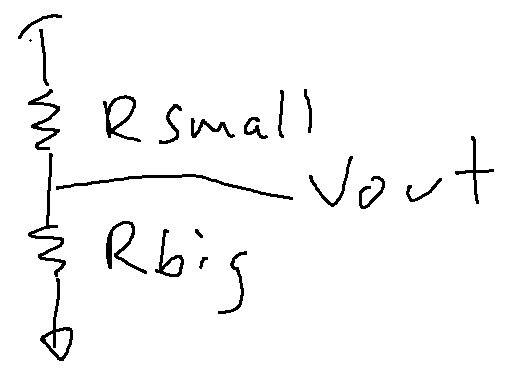 R small
Vout
Rbig